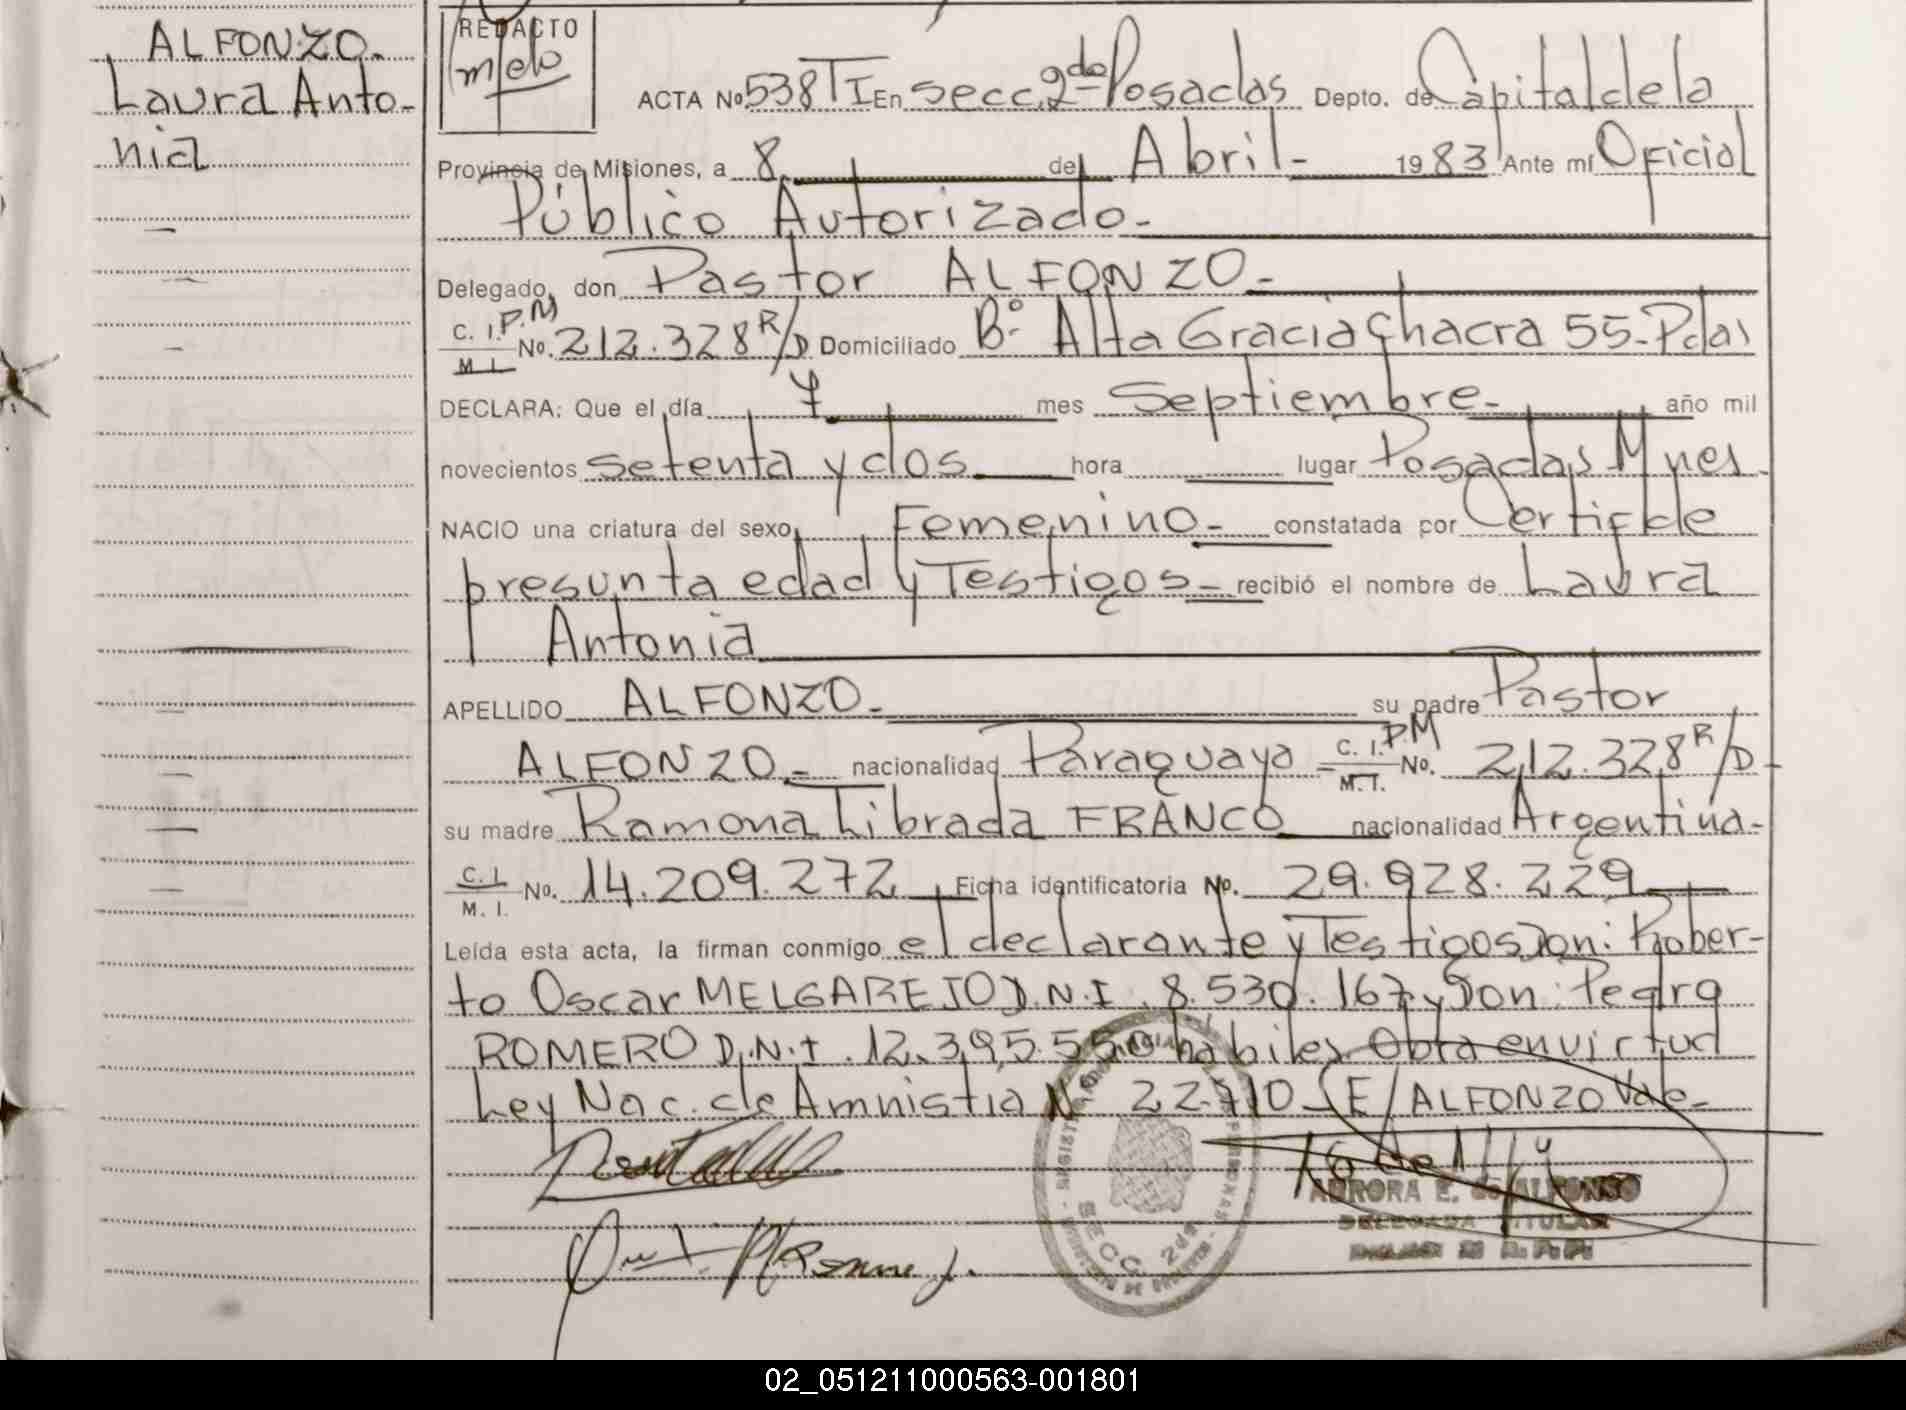 ALFONZO.
Laura Anto-
nia
REDACTO
melo
ACTA Nº 538 TI En secc. 2da Posadas Depto. de Capital de la
Provincia de Misiones, a 8 de Abril- 1983 Ante mí Oficial
Público Autorizado.-
Delegado, don Pastor ALFONZO.-
C. I. P.M
M. I. No. 212.328 R/D Domiciliado Bº Alta Gracia Chacra 55-Pdas
DECLARA: Que el día 7 mes Septiembre.- año mil
novecientos setenta y dos. hora lugar Posadas Mnes.
NACIO una criatura del sexo, Femenino.- constatada por Certif de
presunta edad y Testigos- recibió el nombre de Laura
Antonia
APELLIDO ALFONZO.- su padre Pastor
ALFONZO.- nacionalidad Paraguaya - C. I. P.M
M. I. No. 212.328 R/D-
su madre Ramona Librada FRANCO nacionalidad Argentina-
C. I.
M. I. No. 14.209.272 Ficha identificatoria No. 29.928.229
Leída esta acta, la firman conmigo el declarante y Testigos Don: Rober-
to Oscar MELGAREJO D.N.I. 8.530.167 y Don: Pedro
ROMERO D.N.I. 12.395.550 habiles Obra en virtud
Ley Nac. de Amnistia Nº 22.710 S/E/ALFONZO Vale-
AURORA E. de ALFONSO
DELEGADA TITULAR
SECC. 2da
02_051211000563-001801